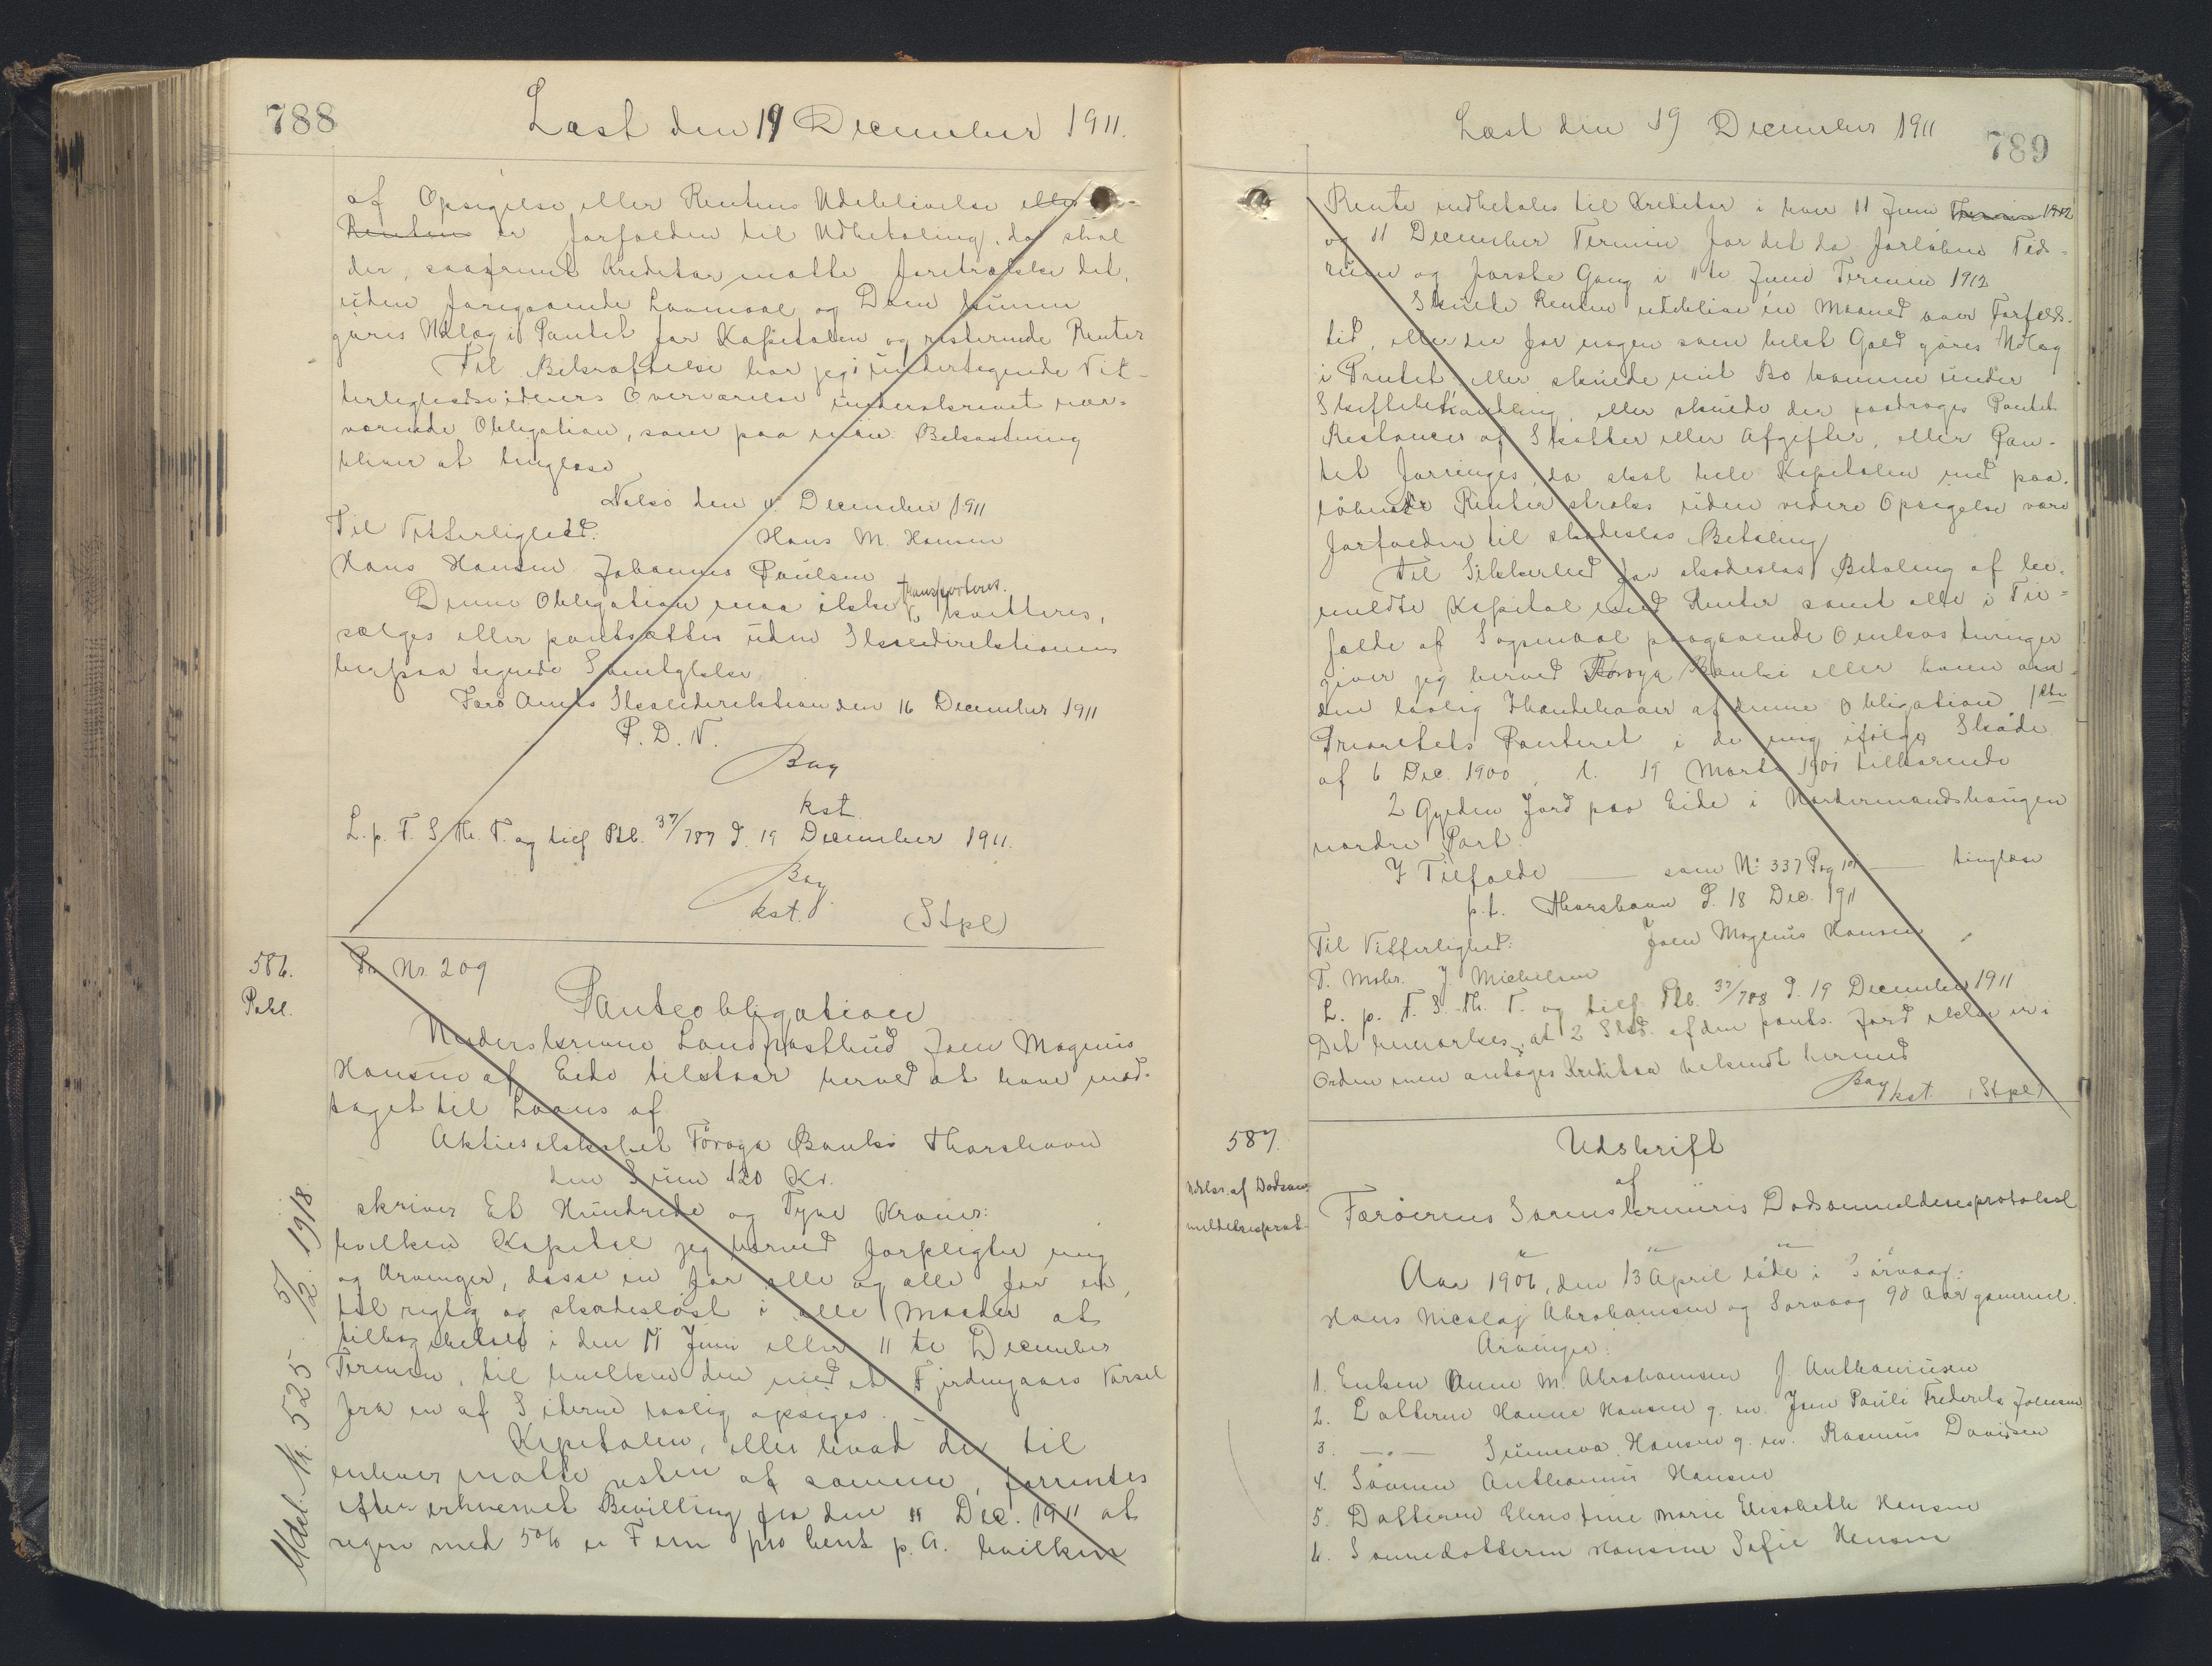 788
Læst den 19 December 1911.
af Opsigelse eller Rentens Udeblivelse eller
Renten er forfalden til Udbetaling, da skal
der, saafremt Kreditor maatte foretrække det,
uden foregaaende Lovmaal og Dom kunne
gøres Udlæg i Pantet for Kapitalen og resterende Renter
Til Bekræftelse har jeg i undertegnede Vit-
terlighedsvidners Overværelse underskrevet nær-
værende Obligation, som paa min Bekostning
bliver at tinglæse
Nolsø den 4 December 1911
Til Vitterlighed: Hans M. Hansen
Hans Hansen Johannes Poulsen
Denne Obligation maa ikke transporteres, kvitteres,
sælges eller pantsættes uden Skoledirektionens
herpaa tegnede Samtykke
Færø Amts Skoledirektion den 16 December 1911
P. D. V.
Bay
kst.
L. p. F. S. Th. T. og tilf Ptb. 37/787 d. 19 December 1911.
Bay
kst.
(Stpl)
586.
Pobl.
Pr Nr. 209
Panteobligation
Underskrevne Landpostbud Joen Magnus
Hansen af Eide tilstaar herved at have mod-
taget til Laans af
Aktieselskabet Føroya Banki Thorshavn
den Sum 120 Kr.
skriver Et Hundrede og Tyve Kroner:
hvilken Kapital jeg herved forpligter mig
og Arvinger, disse en for alle og alle for en,
til rigtig og skadesløst i alle Maader at
tilbagebetale i den 11 Juni eller 11 te December
Termin, til hvilken den med et Fjerdingaars Varsel
fra en af Siderne lovlig opsiges.
Kapitalen, eller hvad der til
enhver maatte restere af samme, forrentes
efter erhvervet Bevilling fra den 11 Dec. 1911 at
regne med 5% er Fem pro Cent p. A. hvilken
Udsl. M. 525 5/12. 1918
Læst den 19 December 1911
789
Rente indbetales til Kreditor i hver 11 Juni Termin 1912
og 11 December Termin for det da forløbne Tids-
rum og første Gang i 11te Juni Termin 1912
Skulde Renten udeblive en Maaned over Forfalds-
tid, eller der for nogen som helst Gæld gøres Udlæg
i Pantet, eller skulde mit Bo komme under
Skiftebehandling, eller skulde der paadrages Pantet
Restancer af Skatter eller Afgifter, eller Pan-
tet forringes, da skal hele Kapitalen med paa-
løbende Renter straks uden videre Opsigelse være
forfalden til skadesløs Betaling
Til Sikkerhed for skadesløs Betaling af be-
meldte Kapital med Renter samt alle i Til-
fælde af Søgsmaal paagaaende Omkostninger
giver jeg herved Føroya Banki eller hvem an-
den lovlig Ihændehaver af denne Obligation 1ste
Prioritets Panteret i de mig ifølge Skøde
af 6 Dec. 1900, l. 19 Marts 1901 tilhørende
2 Gylden Jord paa Eide i Nordermandshaugen
nordre Part.
I Tilfælde — som No 337 Pag 101 — tinglæse
p.t. Thorshavn d. 18 Dec. 1911
Til Vitterlighed: Joen Magnus Hansen
T. Mohr. J. Michelsen
L. p. F. S. Th. T. og tilf Ptb. 37/788 d. 19 December 1911
Det bemærkes, at 2 Skd. af den pants. Jord ikke er i
Orden men antages Kreditor bekendt hermed
Bay kst. (Stpl)
587.
Udskr. af Dødsan-
meldelsesprot.
Udskrift
af
Færøernes Sorenskriveris Dødsanmeldelsesprotokol
Aar 1906, den 13 April døde i Sørvaag:
Hans Nicolaj Abrahamsen og Sørvaag 90 Aar gammel.
Arvinger:
1. Enken Anne M. Abrahamsen f. Anthoniusen
2. Datteren Hanne Hansen g. m. Jens Pauli Frederik Joensen
3. —"— Sunneva Hansen g. m. Rasmus Davidsen
4. Sønnen Anthonius Hansen
5. Datteren Christine Marie Elisabeth Hansen
6. Sønnedatteren Hansine Sofie Hansen